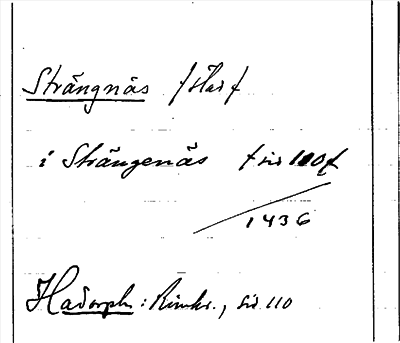 Strängnäs /stad/
i Strängenäs /sid 110/
1436
Hadorph: Rimkr., sid 110